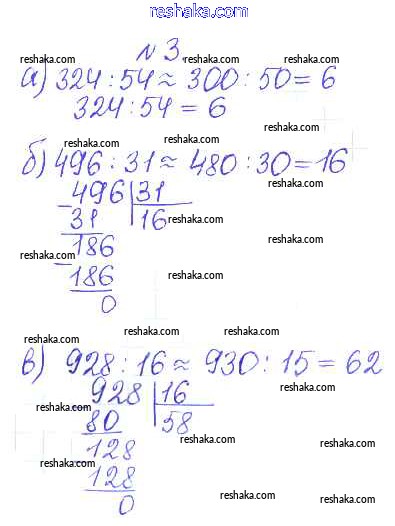 reshaka.com
№ 3.
reshaka.com reshaka.com
а) 324 : 54 ≈ 300 : 50 = 6
reshaka.com reshaka.com
324 : 54 = 6
reshaka.com
reshaka.com
б) 496 : 31 ≈ 480 : 30 = 16
reshaka.com
496 | 31
31 16
reshaka.com
reshaka.com
186
reshaka.com
186
reshaka.com
0
reshaka.com
reshaka.com
в) 928 : 16 ≈ 930 : 15 = 62
reshaka.com
928 | 16
reshaka.com
80 58
reshaka.com
128
reshaka.com
128
reshaka.com
0
reshaka.com